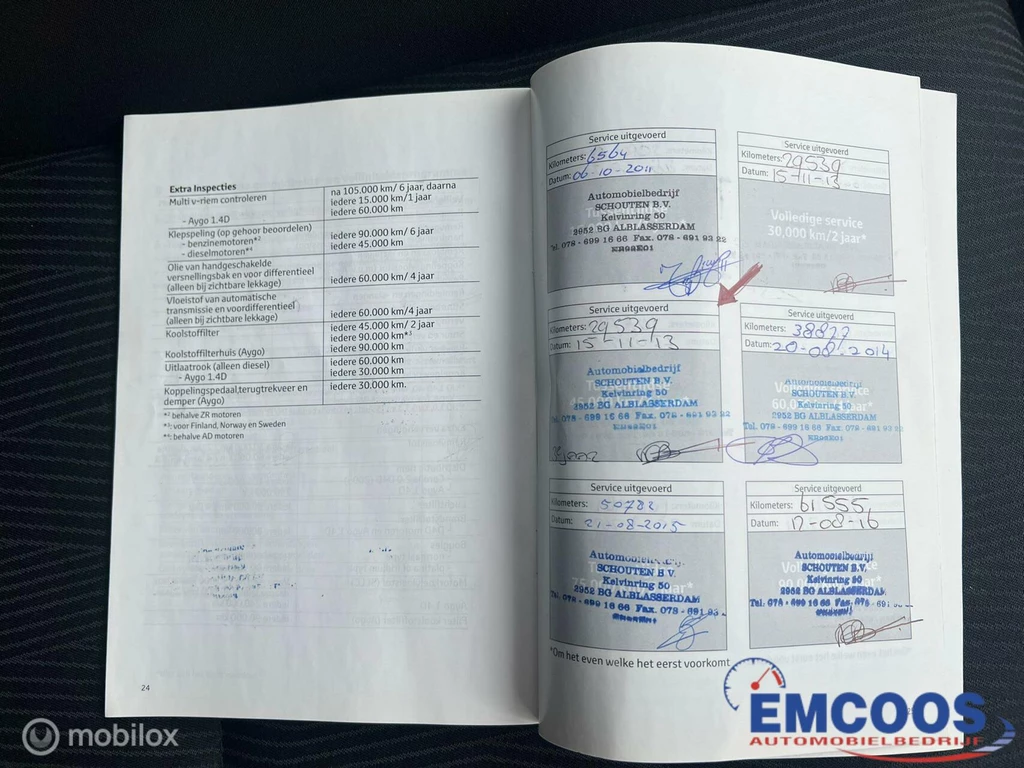 Extra Inspecties
Multi v-riem controleren
- Aygo 1.4D
na 105.000 km/ 6 jaar, daarna
iedere 15.000 km/1 jaar
iedere 60.000 km
Klepspeling (op gehoor beoordelen)
- benzinemotoren*²
- dieselmotoren*⁴
iedere 90.000 km/ 6 jaar
iedere 45.000 km
Olie van handgeschakelde
versnellingsbak en voor differentieel
(alleen bij zichtbare lekkage)
iedere 60.000 km/ 4 jaar
Vloeistof van automatische
transmissie en voordifferentieel
(alleen bij zichtbare lekkage)
iedere 60.000 km/4 jaar
Koolstoffilter
Koolstoffilterhuis (Aygo)
iedere 45.000 km/ 2 jaar
iedere 90.000 km*³
iedere 90.000 km
Uitlaatrook (alleen diesel)
- Aygo 1.4D
iedere 60.000 km
iedere 30.000 km
Koppelingspedaal,terugtrekveer en
demper (Aygo)
iedere 30.000 km.
*² behalve ZR motoren
*³: voor Finland, Norway en Sweden
*⁴: behalve AD motoren
24
Service uitgevoerd
Kilometers: 6564
Datum: 06-10-2011
Automobielbedrijf
SCHOUTEN B.V.
Kelvinring 50
2952 BG ALBLASSERDAM
Tel. 078 - 699 16 66 Fax. 078 - 691 93 22
Service uitgevoerd
Kilometers: 29539
Datum: 15-11-13
Volledige service
30,000 km/2 jaar*
Service uitgevoerd
Kilometers: 29539
Datum: 15-11-13
Automobielbedrijf
SCHOUTEN B.V.
Kelvinring 50
2952 BG ALBLASSERDAM
Tel. 078 - 699 16 66 Fax. 078 - 691 93 22
Service uitgevoerd
Kilometers: 38877
Datum: 20-08-2014
Automobielbedrijf
SCHOUTEN B.V.
Kelvinring 50
2952 BG ALBLASSERDAM
Tel. 078 - 699 16 66 Fax. 078 - 691 93 22
Service uitgevoerd
Kilometers: 50782
Datum: 21-08-2015
SCHOUTEN B.V.
Kelvinring 50
2952 BG ALBLASSERDAM
Tel. 078 - 699 16 66 Fax. 078 - 691 93
Service uitgevoerd
Kilometers: 61555,
Datum: 17-08-16
Automobielbedrijf
SCHOUTEN B.V.
Kelvinring 50
2952 BG ALBLASSERDAM
Tel. 078 - 699 16 66 Fax. 078 - 691
*Om het even welke het eerst voorkomt
mobilox
EMCOOS
AUTOMOBIELBEDRIJF